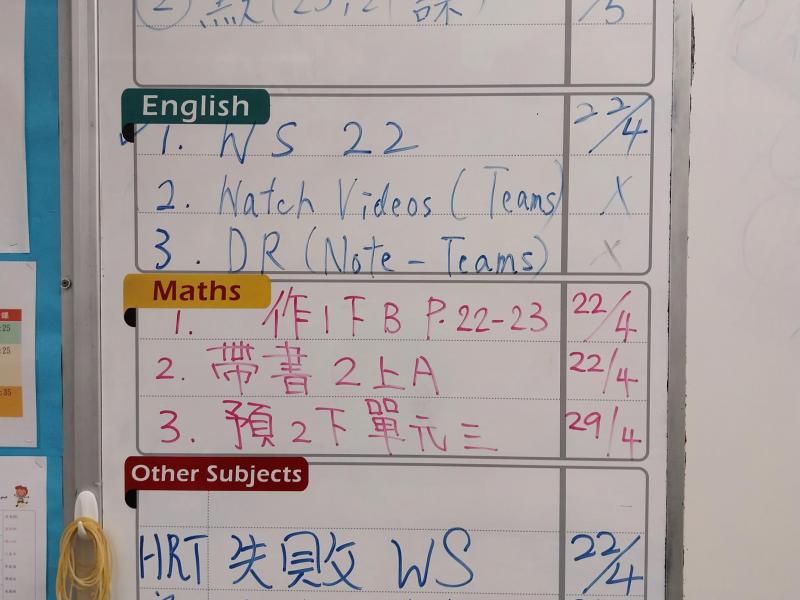 ② 默 (25, 21 課) /5
English
1. WS 22 22/4
2. Watch Videos (Teams) X
3. DR (Note-Teams) X
Maths
1. 作1下B P.22-23 22/4
2. 帶書2上A 22/4
3. 預2下單元三 29/4
Other Subjects
HRT 失敗 WS 22/4
:25
:25
:35